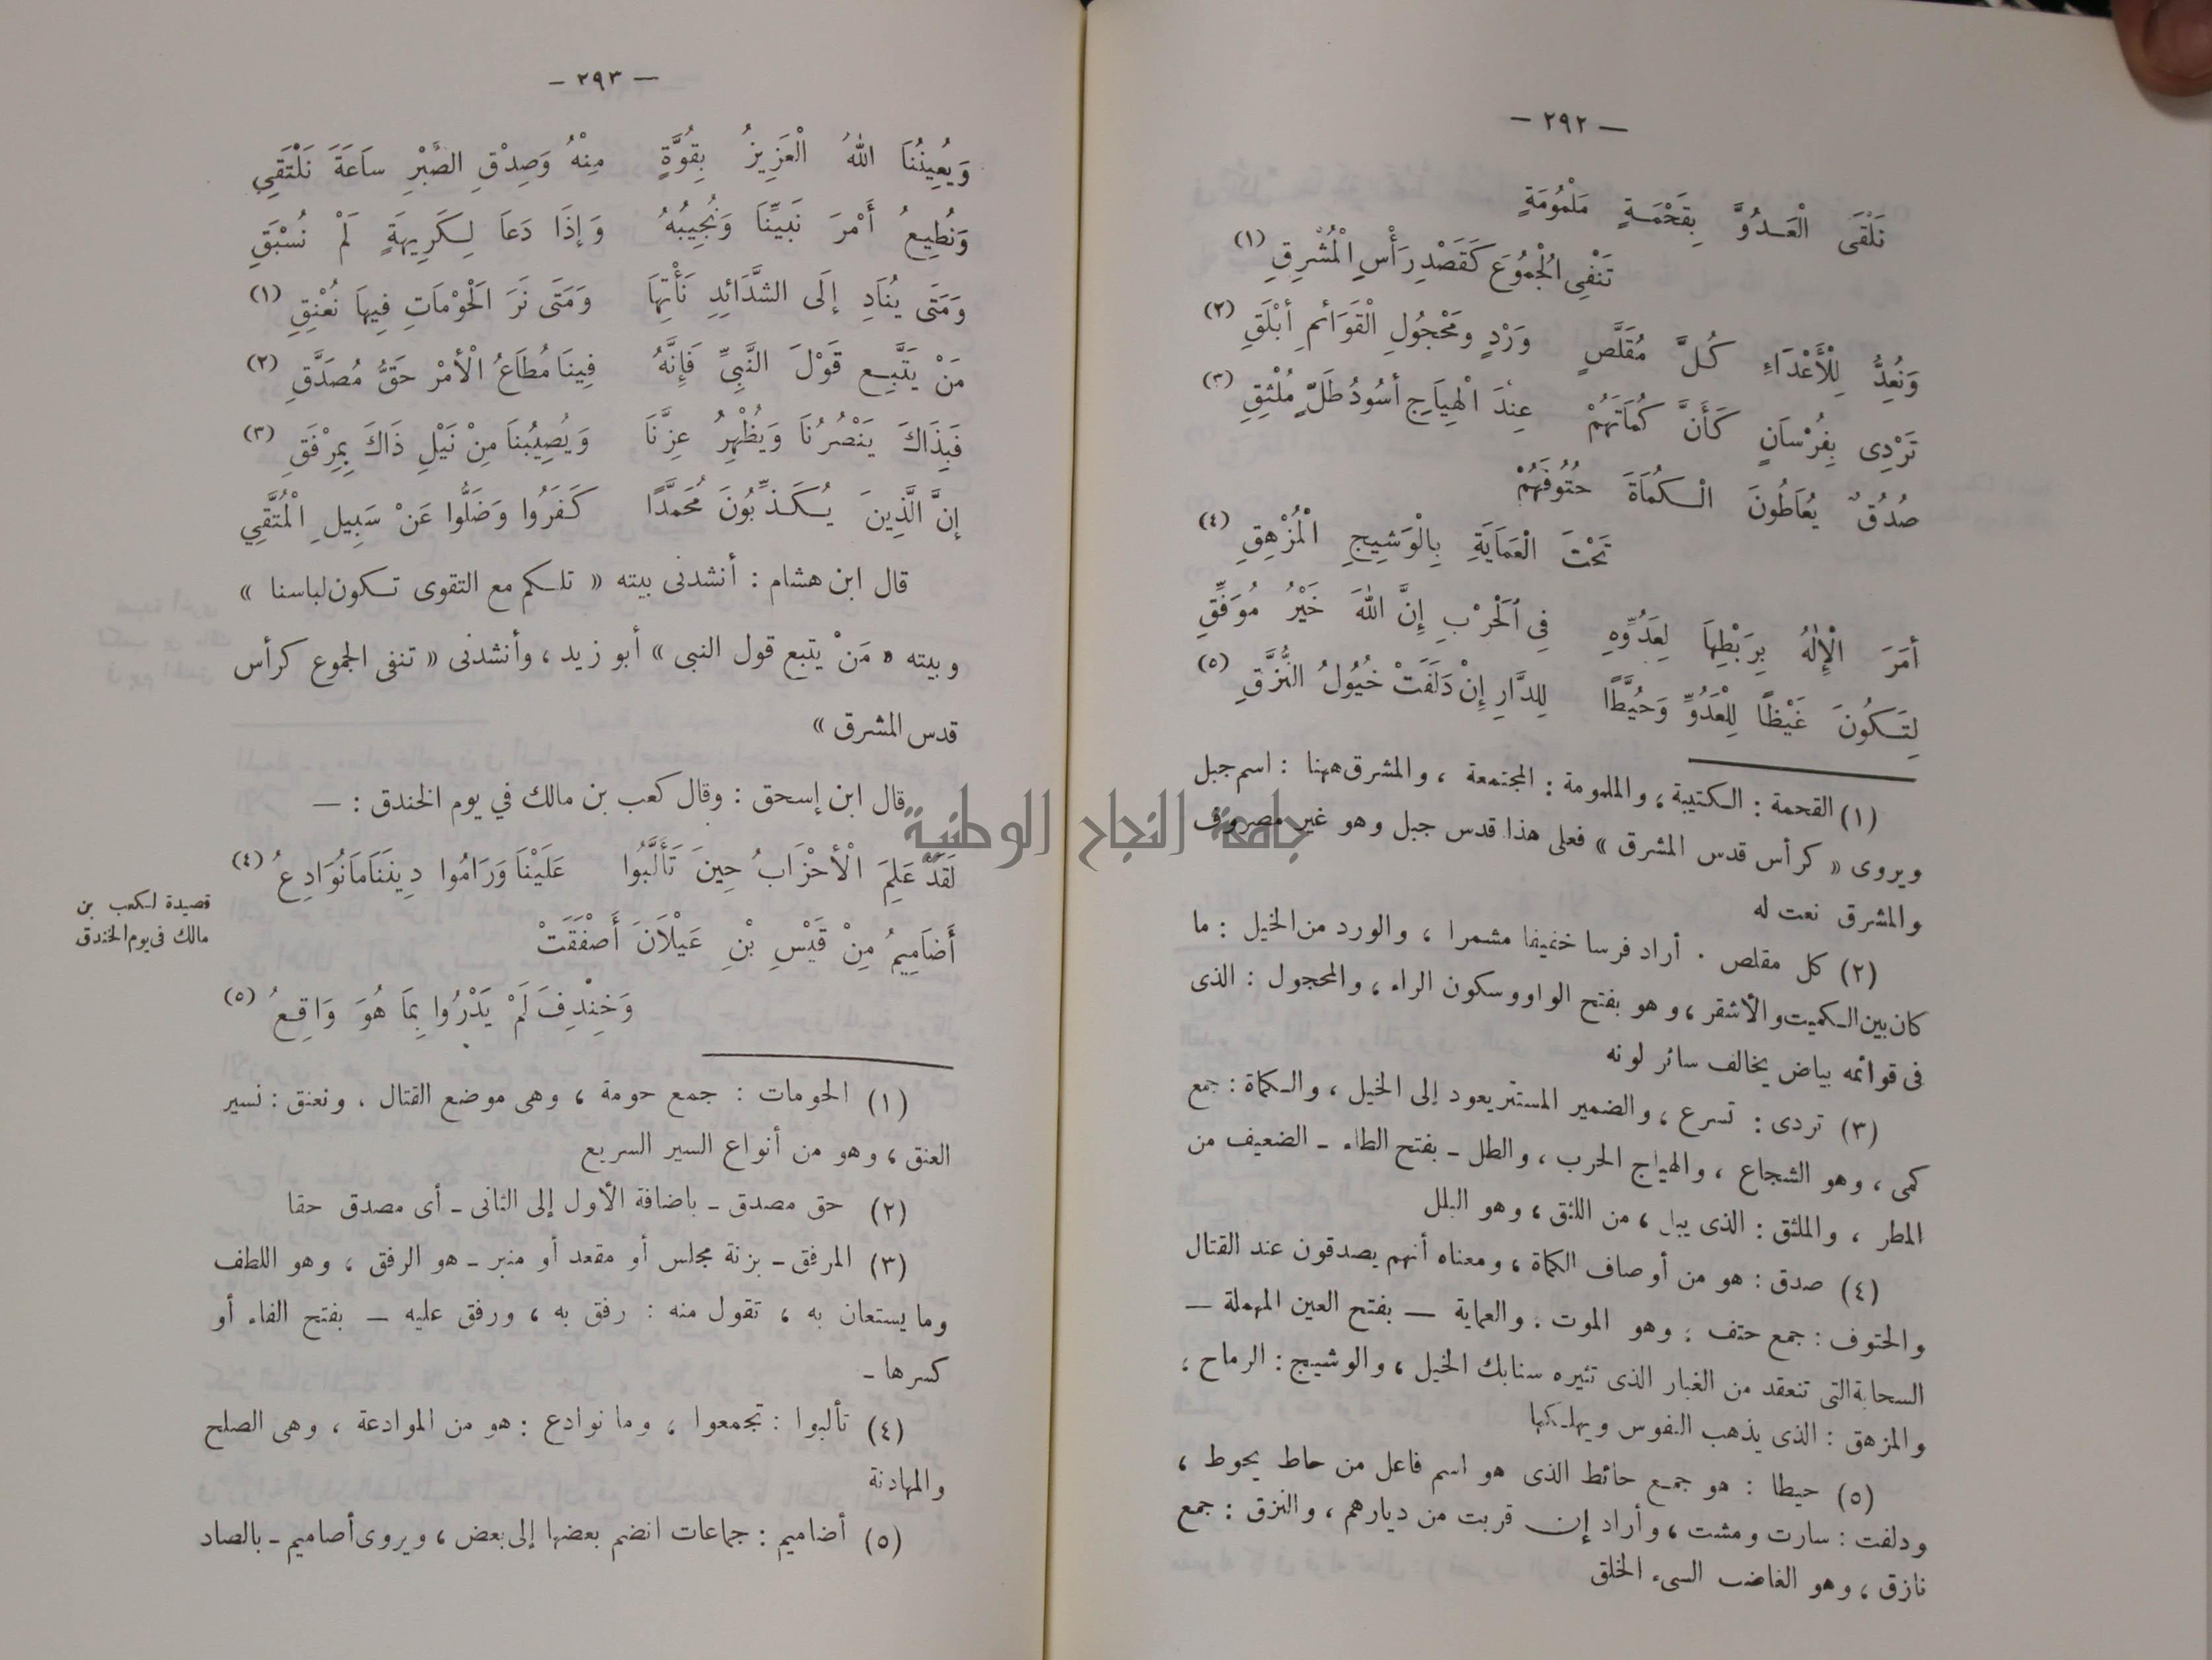 — ٢٩٢ —
نَلْقَى الْعَدُوَّ بِقَحْمَةٍ مَلْمُومَةٍ
تَنْفِى الْجُمُوعَ كَقَصْدِ رَأْسِ الْمُشْرِقِ (١)
وَنُعِدُّ لِلْأَعْدَاءِ كُلَّ مُقَلَّصٍ وَرْدٍ ومَحْجُولِ الْقَوَائمِ أبْلَقِ (٢)
تَرْدِى بِفُرْسَانٍ كَأَنَّ كُمَاتَهُمْ عِنْدَ الْهِيَاجِ أسُودُ طَلٍّ مُلْثِقِ (٣)
صُدُقٌ يُعَاطُونَ الْكُمَاةَ حُتُوفَهُمْ
تَحْتَ الْعَمَايَةِ بِالْوَشِيجِ الْمُزْهِقِ (٤)
أمَرَ الْإِلٰهُ بِرَبْطِهَا لِعَدُوِّهِ فِي الْحَرْبِ إِنَّ اللهَ خَيْرُ مُوَفِّقِ
لِتَكُونَ غَيْظًا لِلْعَدُوِّ وَحُيَّطًا لِلدَّارِ إِنْ دَلَفَتْ خُيُولُ النُّزَّقِ (٥)
(١) القحمة : الكتيبة ، والملمومة : المجتمعة ، والمشرق ههنا : اسم جبل
ويروى « كرأس قدس المشرق » فعلى هذا قدس جبل وهو غير مصروف
والمشرق نعت له
(٢) كل مقلص . أراد فرسا خفيفا مشمرا ، والورد من الخيل : ما
كان بين الكميت والأشقر ، وهو بفتح الواو وسكون الراء ، والمحجول : الذى
فى قوائمه بياض يخالف سائر لونه
(٣) تردى : تسرع ، والضمير المستتر يعود إلى الخيل ، والكماة : جمع
كمى ، وهو الشجاع ، والهياج الحرب ، والطل - بفتح الطاء - الضعيف من
المطر ، والملثق : الذى يبل ، من اللثق ، وهو البلل
(٤) صدق : هو من أوصاف الكماة ، ومعناه أنهم يصدقون عند القتال
والحتوف : جمع حتف ؛ وهو الموت . والعماية — بفتح العين المهملة —
السحابة التى تنعقد من الغبار الذى تثيره سنابك الخيل ، والوشيج : الرماح ؛
والمزهق : الذى يذهب النفوس ويهلكها
(٥) حيطا : هو جمع حائط الذى هو اسم فاعل من حاط يحوط ،
ودلفت : سارت ومشت ، وأراد إن قربت من ديارهم ، والنزق : جمع
نازق ، وهو الغاضب السىء الخلق
— ٢٩٣ —
وَيُعِينُنَا اللهُ الْعَزِيزُ بِقُوَّةٍ مِنْهُ وَصِدْقِ الصَّبْرِ سَاعَةَ نَلْتَقِي
وَنُطِيعُ أَمْرَ نَبِيِّنَا وَنُجِيبُهُ وَإِذَا دَعَا لِكَرِيهَةٍ لَمْ نُسْبَقِ
وَمَتَى يُنَادِ إِلَى الشَّدَائِدِ نَأْتِهَا وَمَتَى نَرَ الْحَوْمَاتِ فِيهَا نُعْنِقِ (١)
مَنْ يَتَّبِع قَوْلَ النَّبِيِّ فَإِنَّهُ فِينَا مُطَاعُ الْأمْرِ حَقُّ مُصَدَّقِ (٢)
فَبِذَاكَ يَنْصُرُنَا وَيُظْهِرُ عِزَّنَا وَيُصِيبُنَا مِنْ نَيْلِ ذَاكَ بِمِرْفَقِ (٣)
إنَّ الَّذِينَ يُكَذِّبُونَ مُحَمَّدًا كَفَرُوا وَضَلُّوا عَنْ سَبِيلِ الْمُتَّقِي
قال ابن هشام : أنشدنى بيته « تلكم مع التقوى تكون لباسنا »
وبيته « مَنْ يتبع قول النبى » أبو زيد ، وأنشدنى « تنفى الجموع كرأس
قدس المشرق »
قال ابن إسحق : وقال كعب بن مالك في يوم الخندق : —
لَقَدْ عَلِمَ الْأحْزَابُ حِينَ تَأَلَّبُوا عَلَيْنَا وَرَامُوا دِينَنَا مَا نُوَادِعُ (٤)
أَضَامِيمُ مِنْ قَيْسِ بْنِ عَيْلَانَ أَصْفَقَتْ
وَخِنْدِفَ لَمْ يَدْرُوا بِمَا هُوَ وَاقِعُ (٥)
قصيدة لكعب بن
مالك فى يوم الخندق
(١) الحومات : جمع حومة ، وهى موضع القتال . ونعنق : نسير
العنق ، وهو من أنواع السير السريع
(٢) حق مصدق - باضافة الأول إلى الثانى - أى مصدق حقا
(٣) المرفق - بزنة مجلس أو مقعد أو منبر - هو الرفق ؛ وهو اللطف
وما يستعان به ، تقول منه : رفق به ، ورفق عليه — بفتح الفاء أو
كسرها -
(٤) تألبوا : تجمعوا ؛ وما نوادع : هو من الموادعة ، وهى الصلح
والمهادنة
(٥) أضاميم : جماعات انضم بعضها إلى بعض ، ويروى أصاميم - بالصاد
جامعة النجاح الوطنية